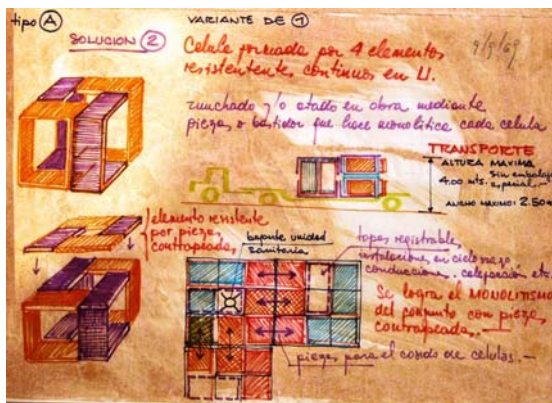 tipo A
VARIANTE DE 1
SOLUCION 2
9/9/69
Celula formada por 4 elementos
resistentente, continuos en U.
zunchado y/o atado en obra mediante
piezas o bastidor que hace monolitica cada celula
TRANSPORTE
ALTURA MAXIMA
4.00 mts. Sin embalaje
especial.-
ANCHO MAXIMO: 2.50
elemento resistente
por piezas
contrapeadas
bajante unidad
sanitaria
topes registrables
instalaciones en cielo raso
conducciones. calefaccion etc
Se logra el MONOLITISMO
del conjunto con piezas
contrapeadas.
piezas para el cosido de celulas.-